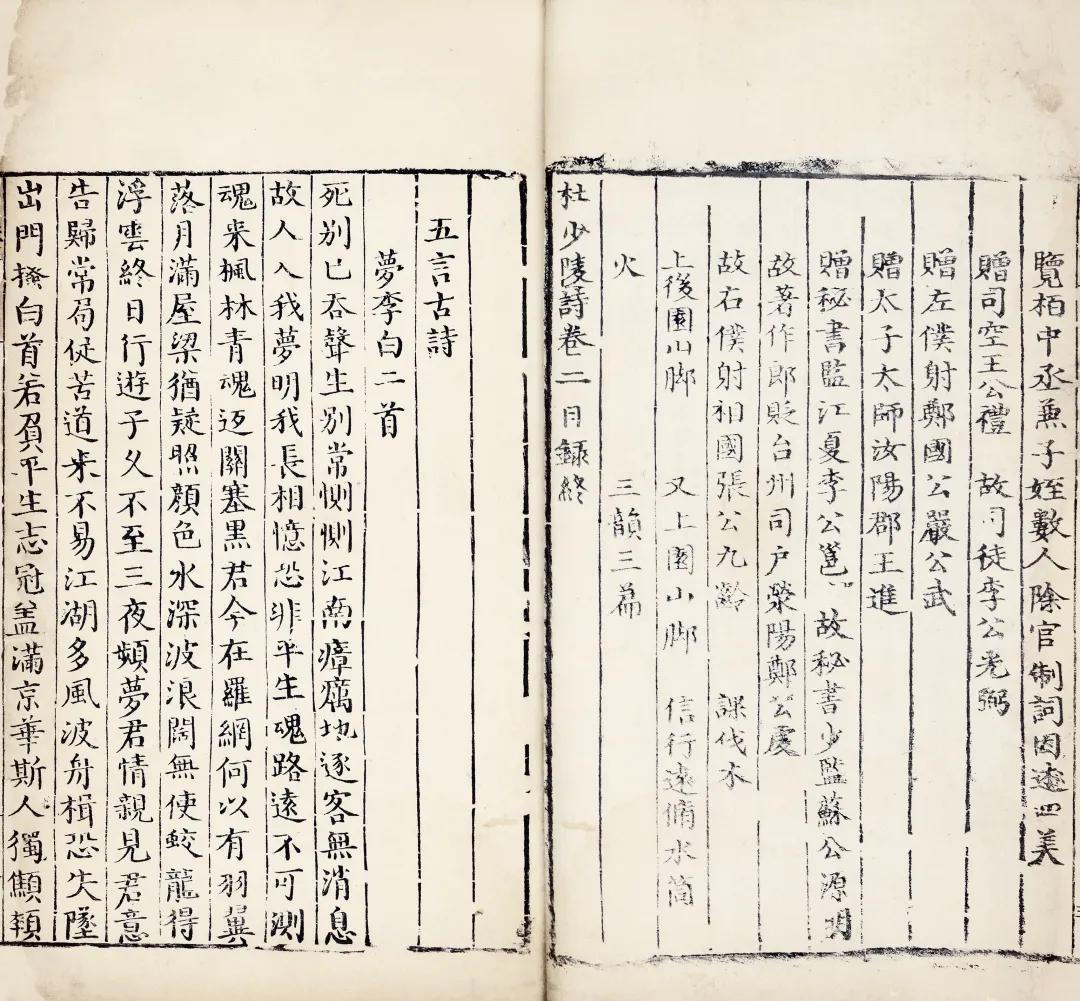 覽栢中丞兼子姪數人除官制詞因述四美
贈司空王公禮　故司徒李公光弼
贈左僕射鄭國公嚴公武
贈太子太師汝陽郡王進
贈秘書監江夏李公邕　故秘書少監蘇公源明
故著作郎貶台州司户滎陽鄭公虔
故右僕射相國張公九齡　課伐木
上後園山脚　又上園山脚　信行遠脩水筒
火　三韻三篇
杜少陵詩卷二目録終
五言古詩
夢李白二首
死别已吞聲生别常惻惻江南瘴癘地逐客無消息
故人入我夢明我長相憶恐非平生魂路遠不可測
魂来楓林青魂返關塞黑君今在羅網何以有羽翼
落月滿屋梁猶疑照顔色水深波浪闊無使蛟龍得
浮雲終日行遊子久不至三夜頻夢君情親見君意
告歸常局促苦道来不易江湖多風波舟楫恐失墜
出門搔白首若負平生志冠盖滿京華斯人獨顦頓